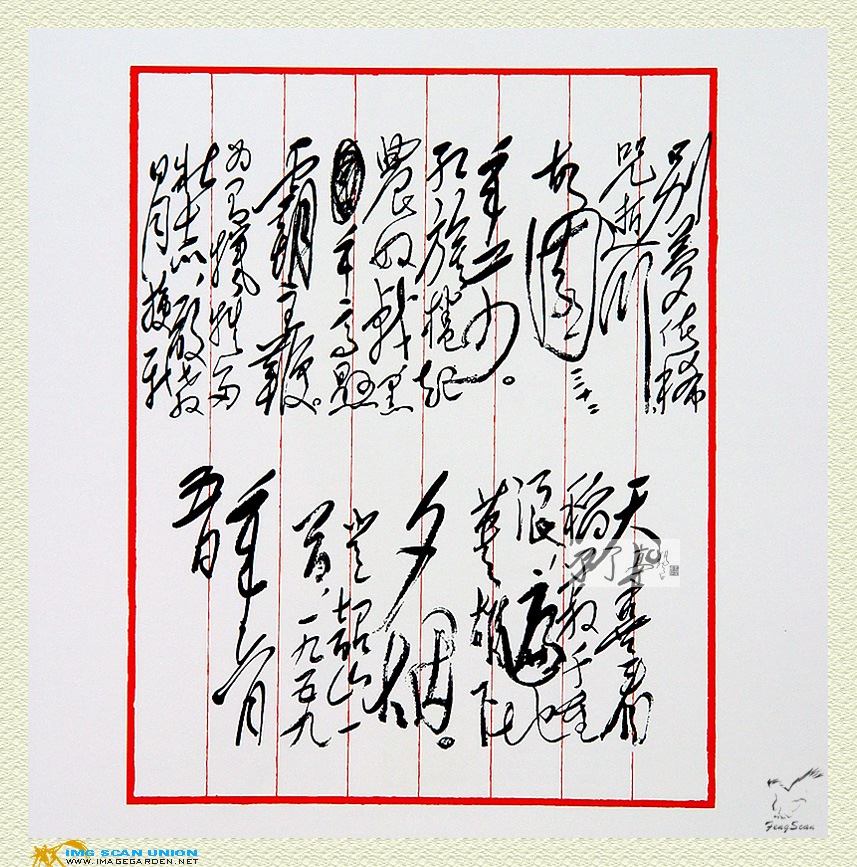 别夢依稀
咒逝川
故園三十二
年前。
红旗捲起
農奴戟黑
手高懸
霸主鞭。
为有犠牲多
壮志，敢教
日月换新
天，喜看
稻菽千重
浪，遍地
英雄下
夕烟。
登韶山一
首，一九五九
年六月
FengScan
IMG SCAN UNION
WWW.IMAGEGARDEN.NET